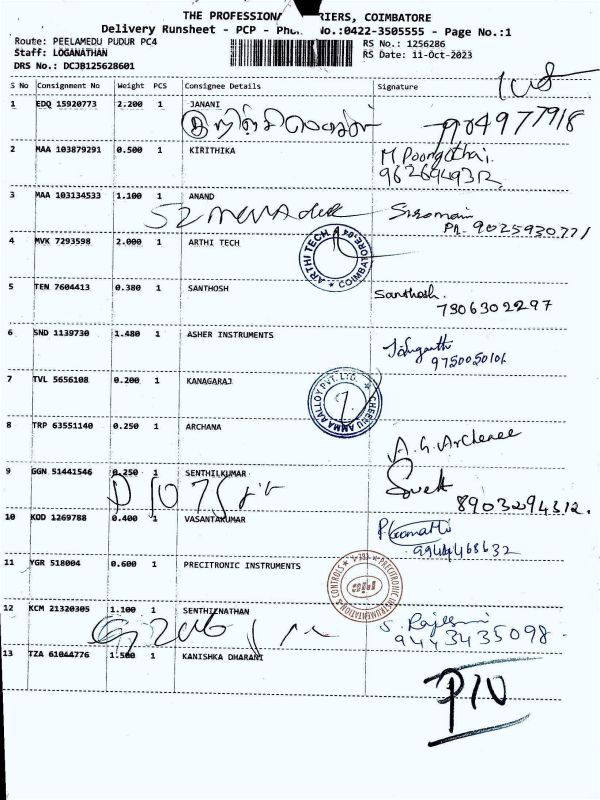 THE PROFESSIONAL COURIERS, COIMBATORE
Delivery Runsheet - PCP - Phone No.:0422-3505555 - Page No.:1
Route: PEELAMEDU PUDUR PC4
RS No.: 1256286
Staff: LOGANATHAN
RS Date: 11-Oct-2023
DRS No.: DCJB125628601
S No Consignment No Weight PCS Consignee Details Signature
1 EDQ 15920773 2.200 1 JANANI
2 MAA 103879291 0.500 1 KIRITHIKA
M Poongothai
9626949312
3 MAA 103134533 1.100 1 ANAND
PH. 9025930771
4 MVK 7293598 2.000 1 ARTHI TECH
ARTHI TECH
5 TEN 7604413 0.380 1 SANTHOSH
Santhosh.
7306302297
6 SND 1139730 1.480 1 ASHER INSTRUMENTS
9750050101
7 TVL 5656108 0.200 1 KANAGARAJ
CHEENU AMMA AALLOY PVT. LTD.
8 TRP 63551140 0.250 1 ARCHANA
A. G. Archanee
9 GGN 51441546 0.250 1 SENTHILKUMAR
8903294312.
10 KOD 1269788 0.400 1 VASANTAKUMAR
P. Gomathi
9944468632
11 YGR 518004 0.600 1 PRECITRONIC INSTRUMENTS
PRECITRONIC INSTRUMENTATION & CONTROLS
12 KCM 21320305 1.100 1 SENTHILNATHAN
9443435098
13 TZA 61044776 1.500 1 KANISHKA DHARANI